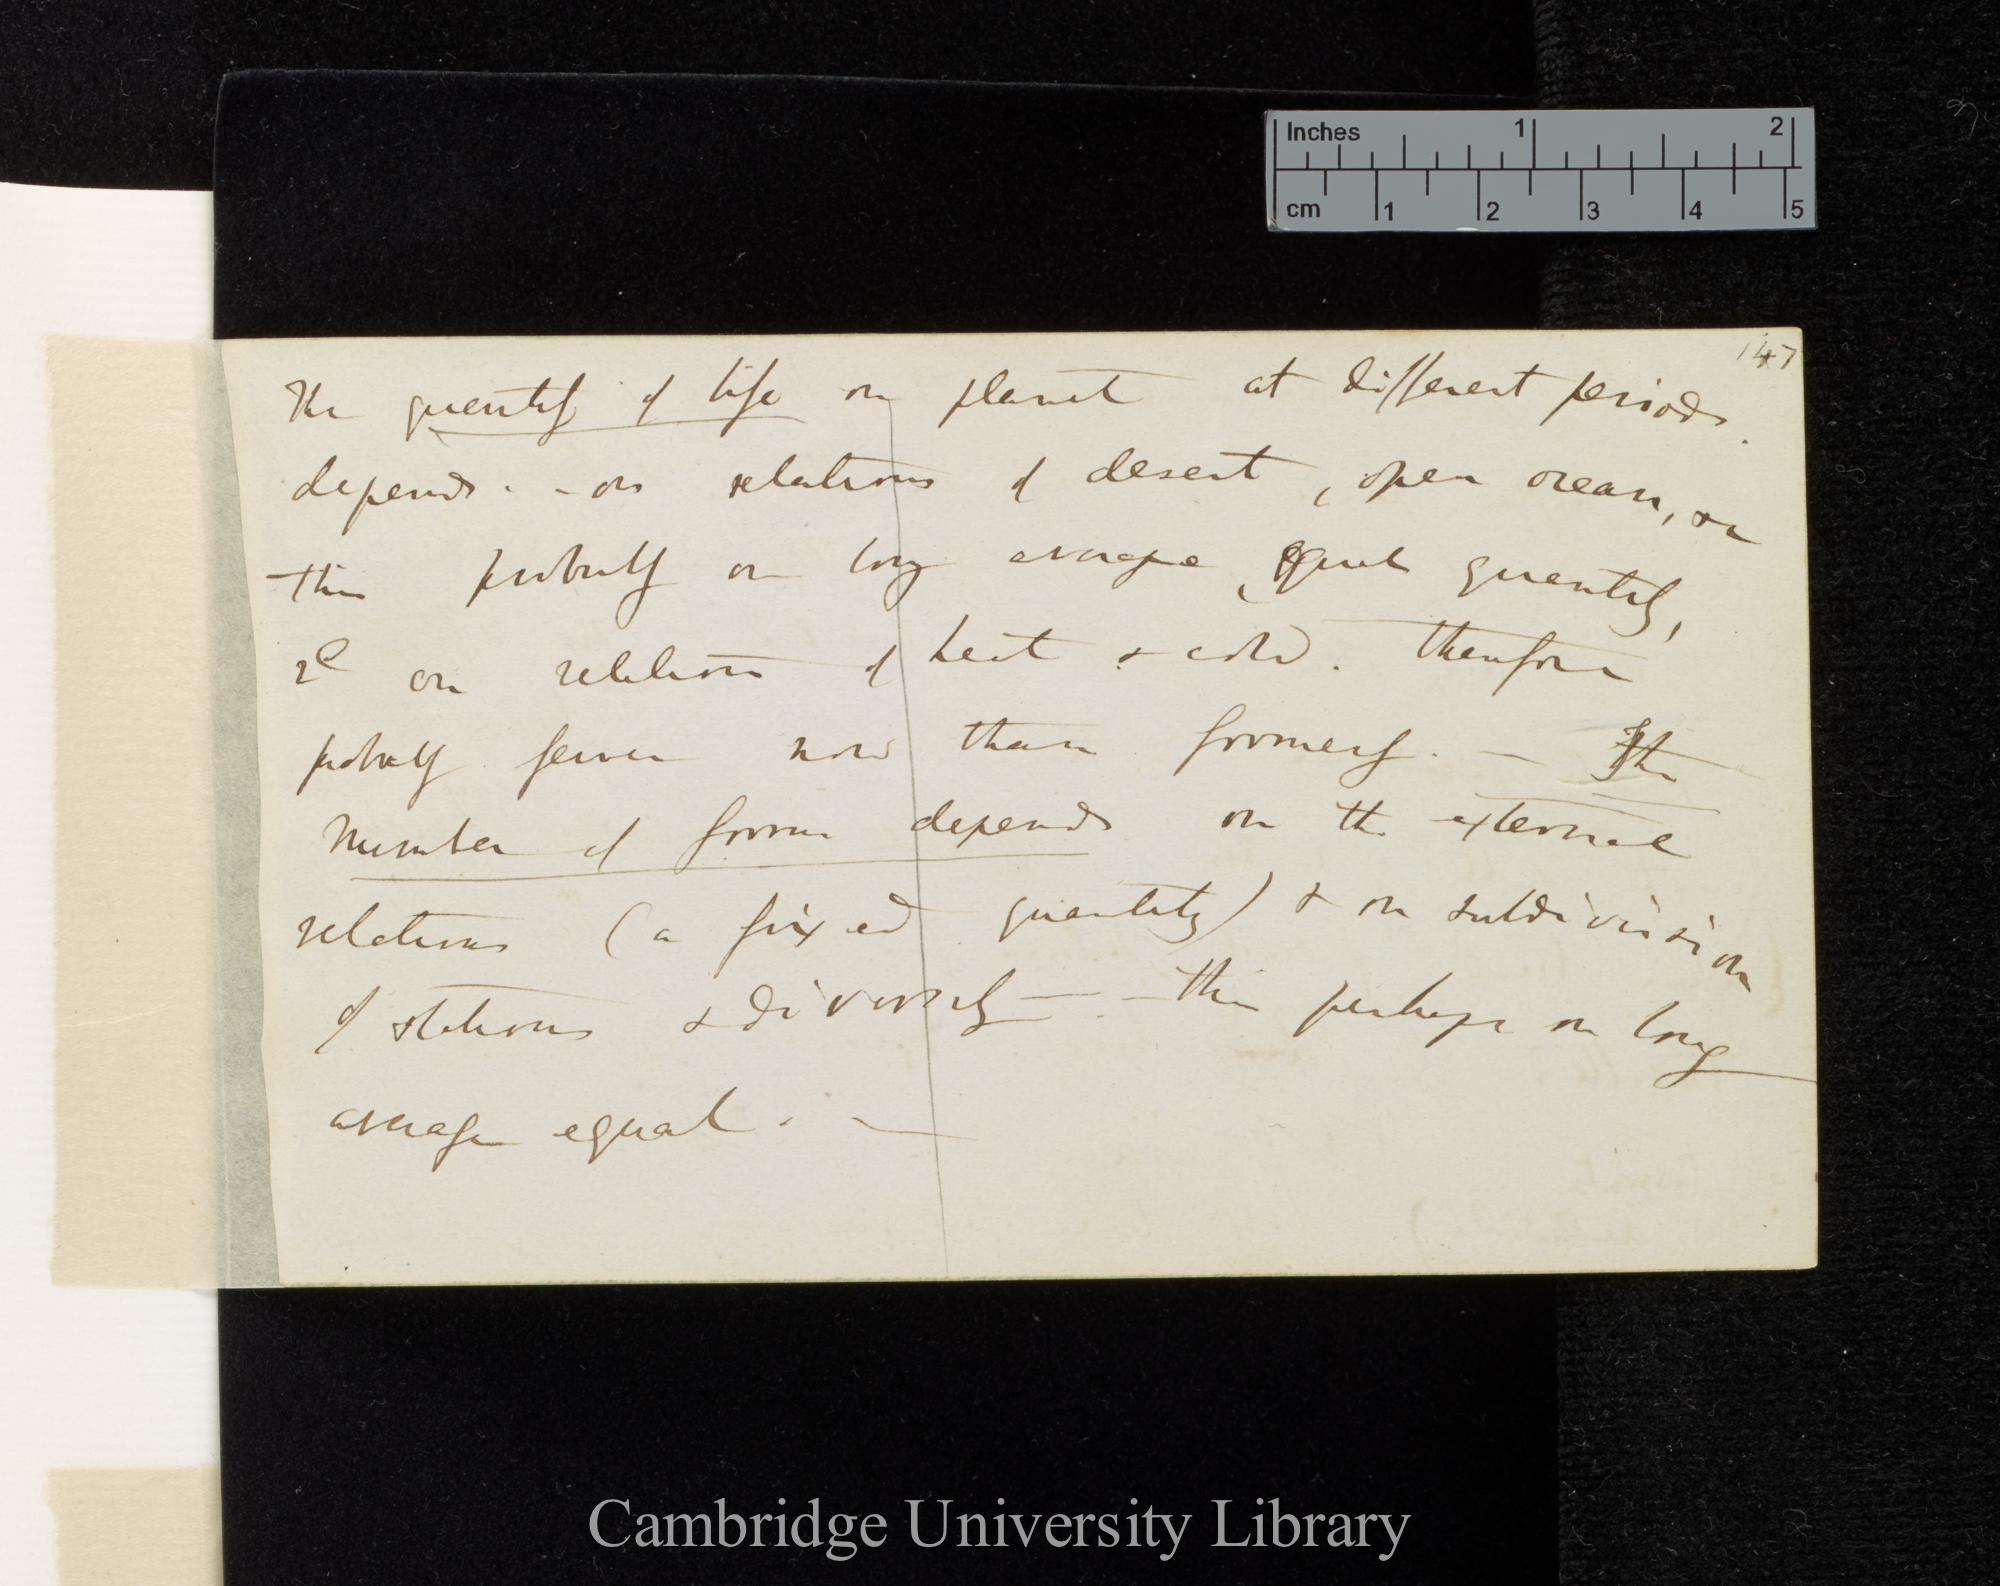 Inches 1 2
cm 1 2 3 4 5
147
The quantity of life on planet at different periods.
depends. - on relations of desert, open ocean, &c
this probably on long average, equal quantity,
2d on relation of heat & cold. Therefore
probably fewer now than formerly. — The
Number of forms depends on the external
relations (a fixed quantity) & on subdivision
of stations & diversity — - this perhaps on long
average equal. —
Cambridge University Library